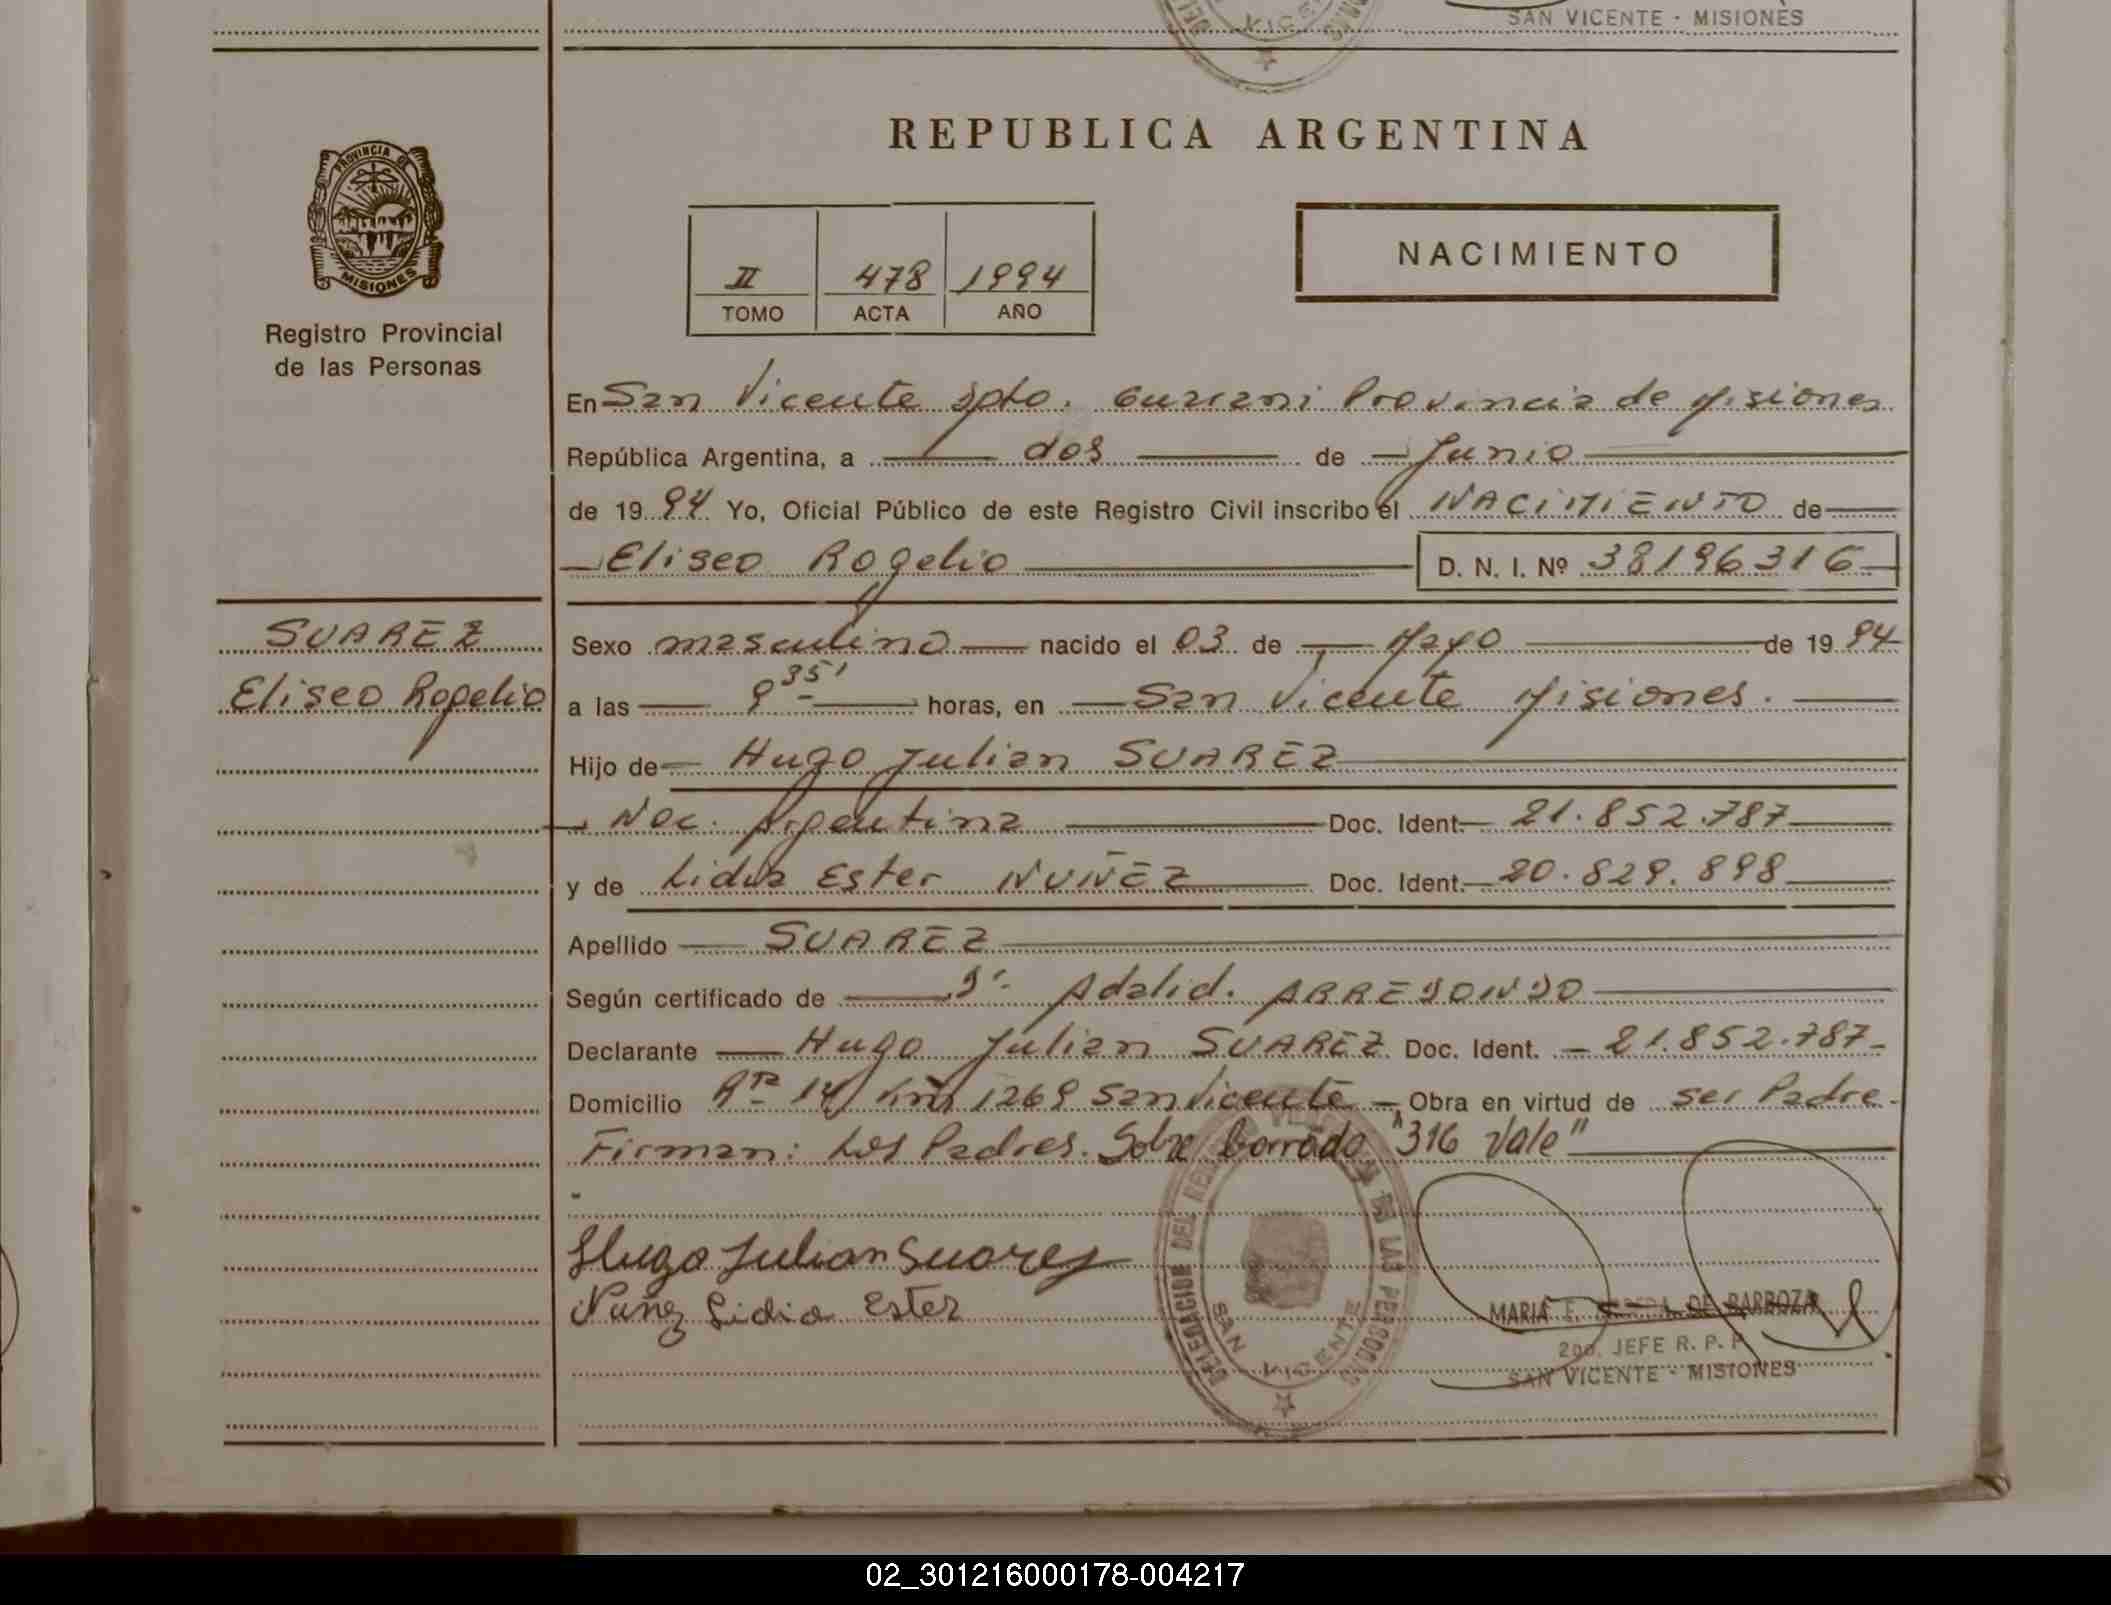 SAN VICENTE - MISIONES
VICE
REPUBLICA ARGENTINA
PROVINCIA DE
MISIONES
Registro Provincial
de las Personas
II 478 1994
TOMO ACTA AÑO
NACIMIENTO
En San Vicente Dpto. Guarani Provincia de Misiones
República Argentina, a dos de Junio
de 1994 Yo, Oficial Público de este Registro Civil inscribo el NACIMIENTO de
Eliseo Rogelio D. N. I. Nº 38196316
SUAREZ
Eliseo Rogelio
Sexo masculino nacido el 03 de Mayo de 1994
a las 9 35' horas, en San Vicente Misiones.
Hijo de Hugo Julian SUAREZ
Nac. Argentina Doc. Ident. 21.852.787
y de Lidia Ester NUÑEZ Doc. Ident. 20.829.898
Apellido SUAREZ
Según certificado de Dr. Adalid. ARREDONDO
Declarante Hugo Julian SUAREZ Doc. Ident. 21.852.787
Domicilio Rta 14 Km 1269 San Vicente Obra en virtud de ser Padre.
Firman: Los Padres. Sobre borrado "316 Vale"
Hugo Julian Suarez
Nuñez Lidia Ester
DELEGACION DEL DE LAS PERSONAS
SAN VICENTE
MARIA E. DE BARBOZA
2do. JEFE R. P. P.
SAN VICENTE - MISIONES
02_301216000178-004217